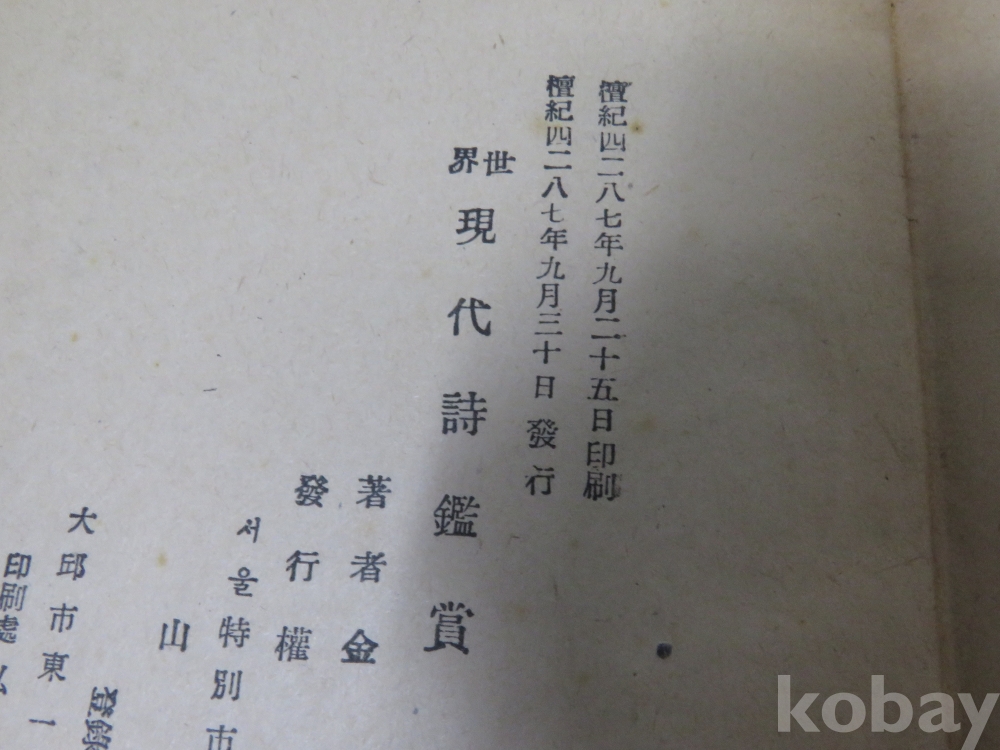 檀紀四二八七年九月二十五日印刷
檀紀四二八七年九月三十日發行
世界
現代詩鑑賞
著者金
發行權
서울特別市
山
大邱市東一
登錄
印刷處弘
kobay